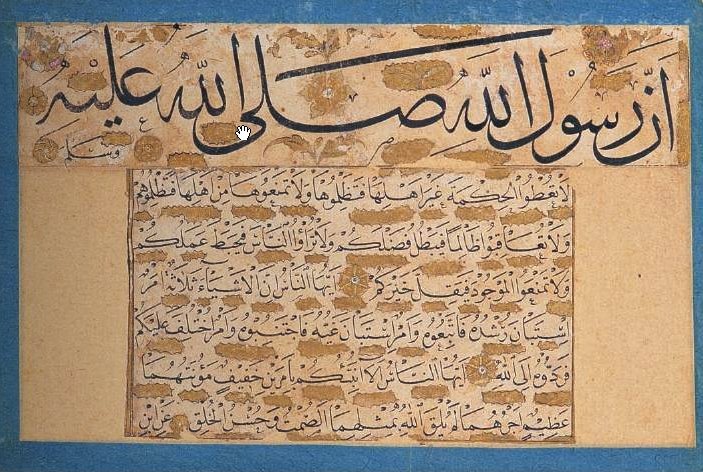 ان رسول الله صلى الله عليه
وسلم
لا تعطوا الحكمة غير اهلها فتظلموها ولا تمنعوها من اهلها فتظلموهم
ولا تعاقبوا ظالما فيبطل فضلكم ولا تراؤا الناس فيحبط عملكم
ولا تمنعوا الموجود فيقل خيركم ايها الناس ان الاشياء ثلاثة امر
استبان رشده فاتبعوه وامر استبان غيه فاجتنبوه وامر اختلف عليكم
فردوه الى الله ايها الناس الا انبئكم بامرين خفيف مؤنتهما
عظيم اجرهما لم يلق الله بمثلهما الصمت وحسن الخلق